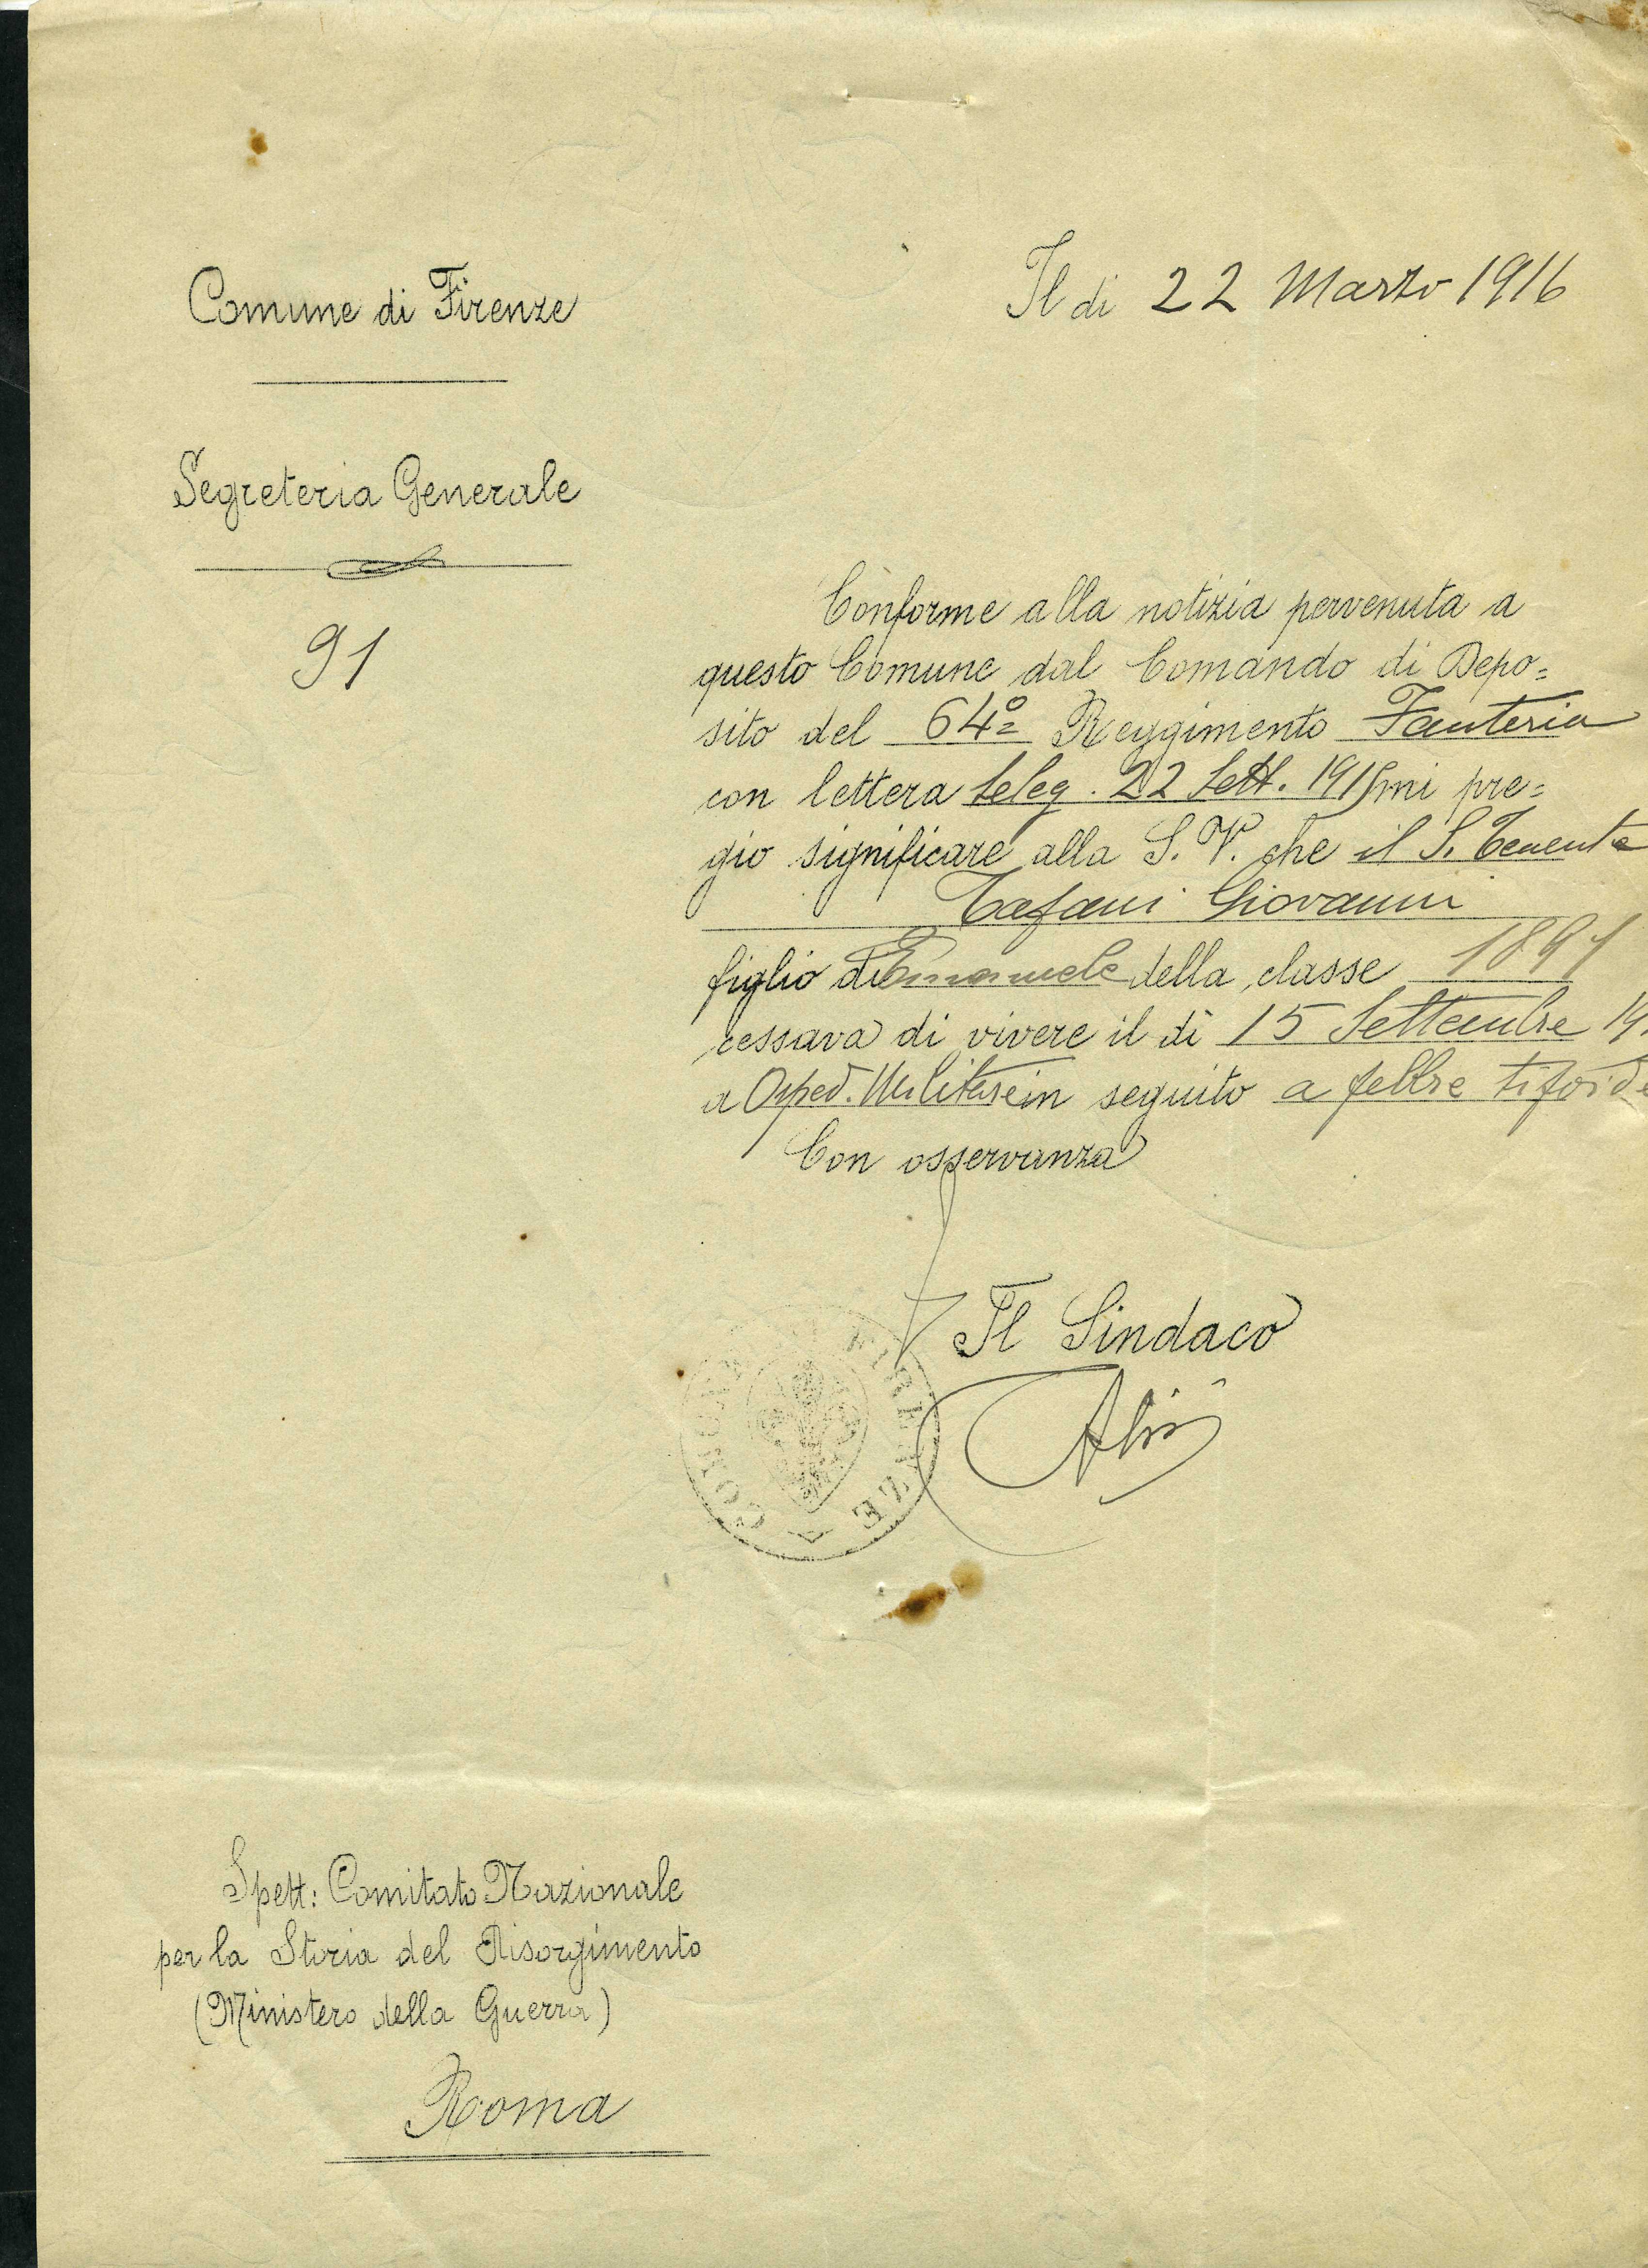 Comune di Firenze
Il di 22 Marzo 1916
Segreteria Generale
91
Conforme alla notizia pervenuta a
questo Comune dal Comando di Depo=
sito del 64º Reggimento Fanteria
con lettera teleg. 22 Sett. 1915 mi pre=
gio significare alla S. V. che il S. Tenente
Tafani Giovanni
figlio di Emanuele della classe 1891
cessava di vivere il dì 15 Settembre 19
a Osped. Militare in seguito a febbre tifoide
Con osservanza
Il Sindaco
COMUNE DI FIRENZE
Spett: Comitato Nazionale
per la Storia del Risorgimento
(Ministero della Guerra)
Roma